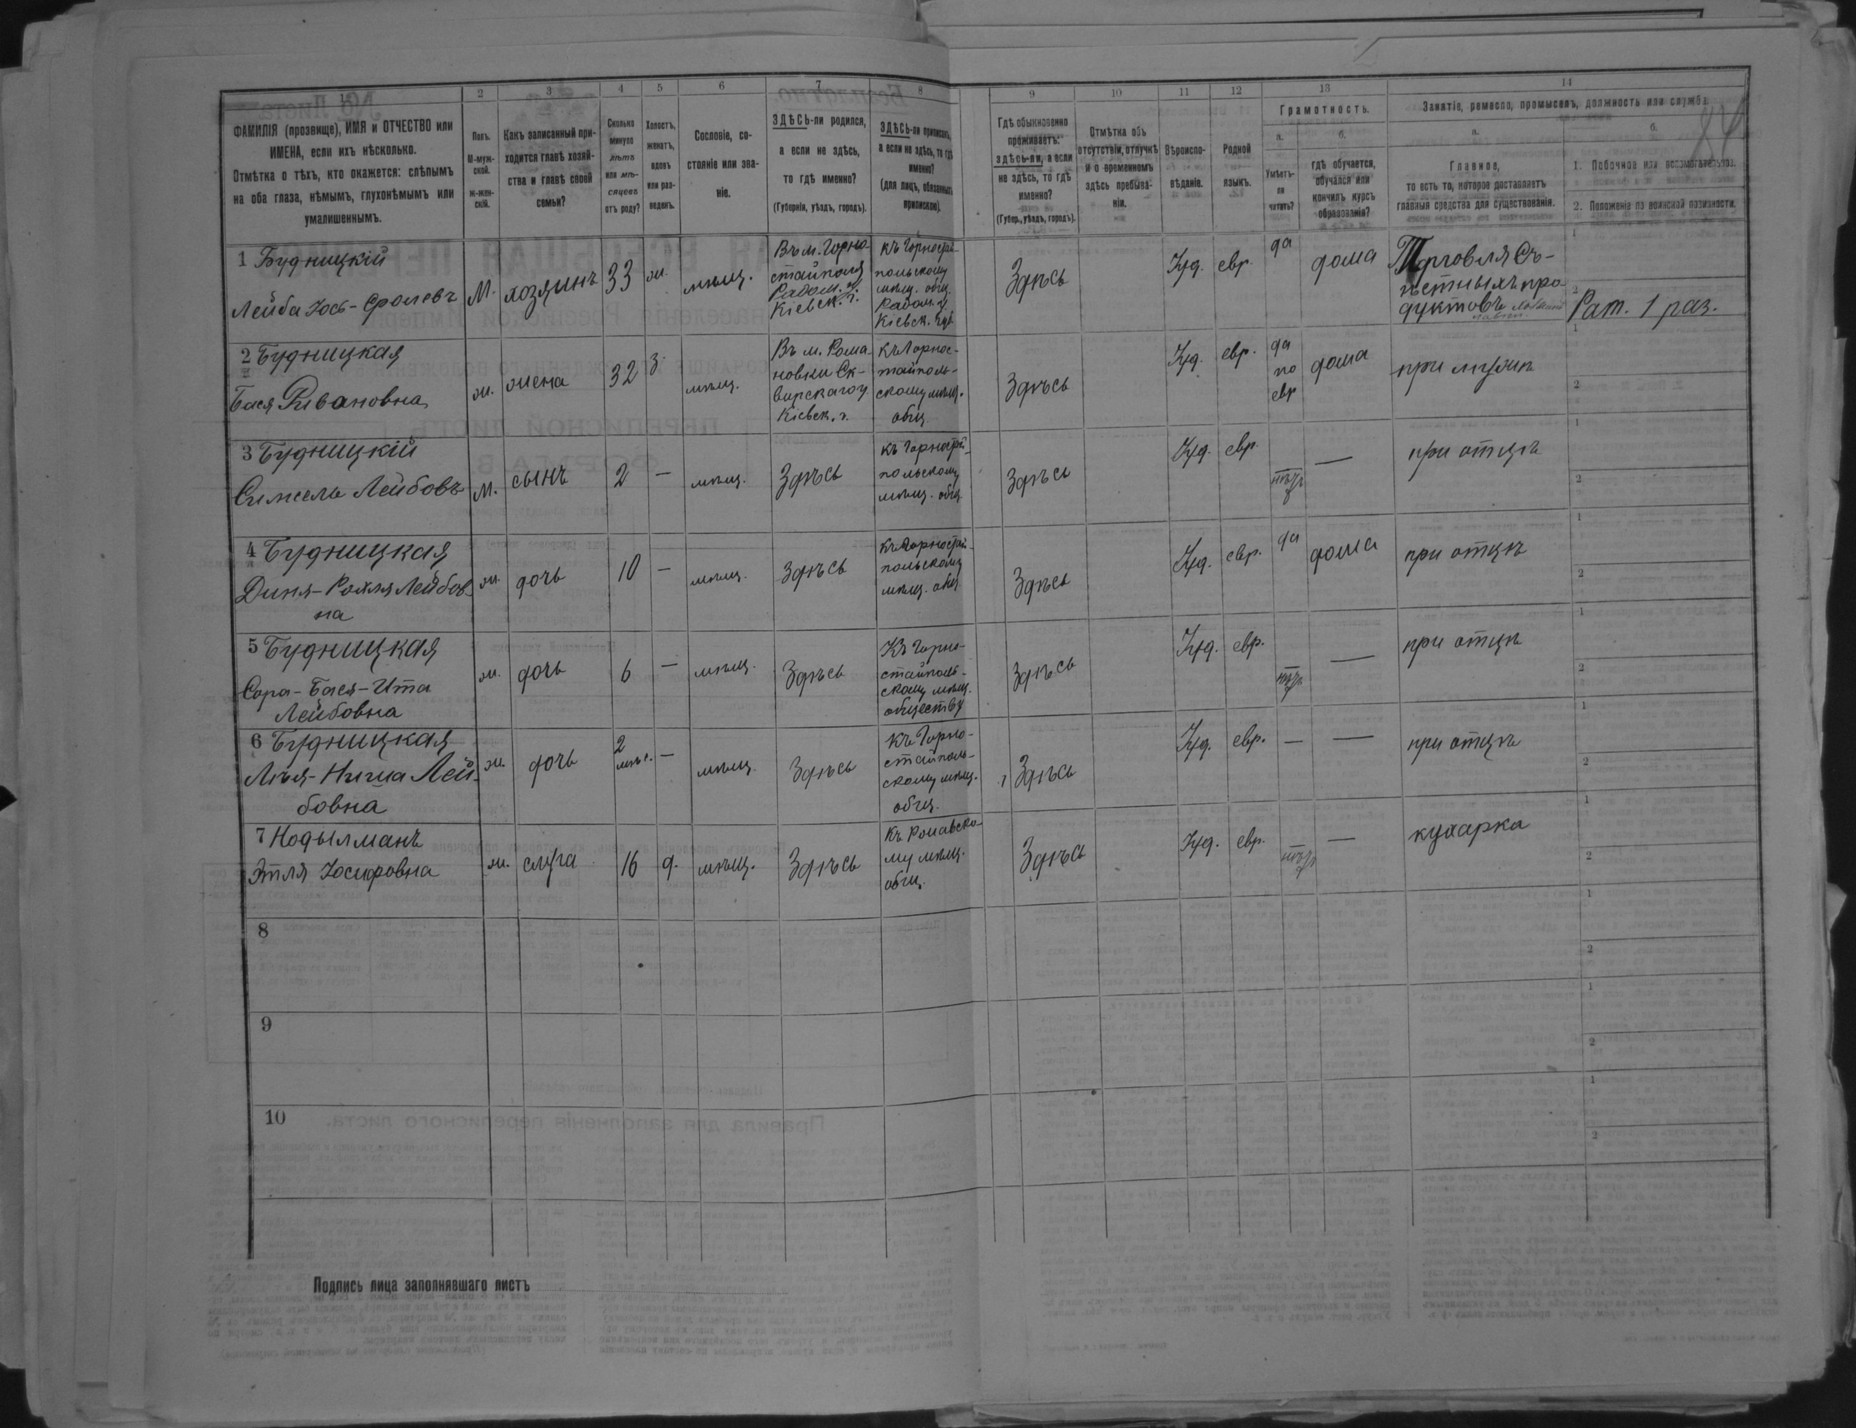 1 2 3 4 5 6 7 8 9 10 11 12 13 14
ФАМИЛІЯ (прозвище), ИМЯ и ОТЧЕСТВО или
ИМЕНА, если ихъ нѣсколько.
Отмѣтка о тѣхъ, кто окажется: слѣпымъ
на оба глаза, нѣмымъ, глухонѣмымъ или
умалишеннымъ.
Полъ.
М-муж-
ской.
ж-жен-
скій.
Какъ записанный при-
ходится главѣ хозяй-
ства и главѣ своей
семьи?
Сколько
минуло
лѣтъ
или мѣ-
сяцевъ
отъ роду?
Холостъ,
женатъ,
вдовъ
или раз-
веденъ.
Сословіе, со-
стояніе или зва-
ніе.
ЗДѢСЬ-ли родился,
а если не здѣсь,
то гдѣ именно?
(Губернія, уѣздъ, городъ).
ЗДѢСЬ-ли приписанъ,
а если не здѣсь, то гдѣ
именно?
(для лицъ, обязанныхъ
припискою).
Гдѣ обыкновенно
проживаетъ:
здѣсь-ли, а если
не здѣсь, то гдѣ
именно?
(Губер., уѣздъ, городъ).
Отмѣтка объ
отсутствіи, отлучкѣ
и о временномъ
здѣсь пребыва-
ніи.
Вѣроиспо-
вѣданіе.
Родной
языкъ.
Грамотность.
а. б.
Умѣетъ-
ли
читать?
гдѣ обучается,
обучался или
кончилъ курсъ
образованія?
Занятіе, ремесло, промыселъ, должность или служба.
а. б.
Главное,
то есть то, которое доставляетъ
главныя средства для существованія.
1. Побочное или вспомогательное.
2. Положеніе по воинской повинности.
1 Будницкій
Лейба Іось-Фролевъ
М.
хозяинъ
33
ж.
мѣщ.
Въ м. Горно
стайполя
Радом. у.
Кіевск. г.
къ Горностай
польскому
мѣщ. общ.
Радом. у.
Кіевск. губ.
Здѣсь
Іуд.
евр.
да
дома
Торговля съ-
ѣстныхъ про
дуктовъ
Рат. 1 раз.
2 Будницкая
Бася Рывановна
ж.
жена
32
з.
мѣщ.
Въ м. Рома-
новки Ск-
вирскаго у
Кіевск. г.
къ Горнос-
тайполь-
скому мѣщ.
общ.
Здѣсь
Іуд.
евр.
да
по
евр
дома
при мужѣ
3 Будницкій
Симсель Лейбовъ
М.
сынъ
2
—
мѣщ.
Здѣсь
къ Горностай-
польскому
мѣщ. общ
Здѣсь
Іуд.
евр.
нѣтъ
—
при отцѣ
4 Будницкая
Диня-Рохля Лейбов-
на
ж.
дочь
10
—
мѣщ.
Здѣсь
къ Горностай-
польскому
мѣщ. общ
Здѣсь
Іуд.
евр.
да
дома
при отцѣ
5 Будницкая
Сора-Бася-Ита
Лейбовна
ж.
дочь
6
—
мѣщ.
Здѣсь
Къ Горно-
стайполь-
скому мѣщ.
обществу
Здѣсь
Іуд.
евр.
нѣтъ
—
при отцѣ
6 Будницкая
Лея-Ниша Лей-
бовна
ж.
дочь
2
мѣс.
—
мѣщ.
Здѣсь
Къ Горно-
стайполь-
скому мѣщ.
общ.
Здѣсь
Іуд.
евр.
—
—
при отцѣ
7 Нодылманъ
Этля Іосифовна
ж.
слуга
16
д.
мѣщ.
Здѣсь
мѣщ.
общ.
Здѣсь
Іуд.
евр.
нѣтъ
—
кухарка
8
9
10
Подпись лица заполнявшаго листъ